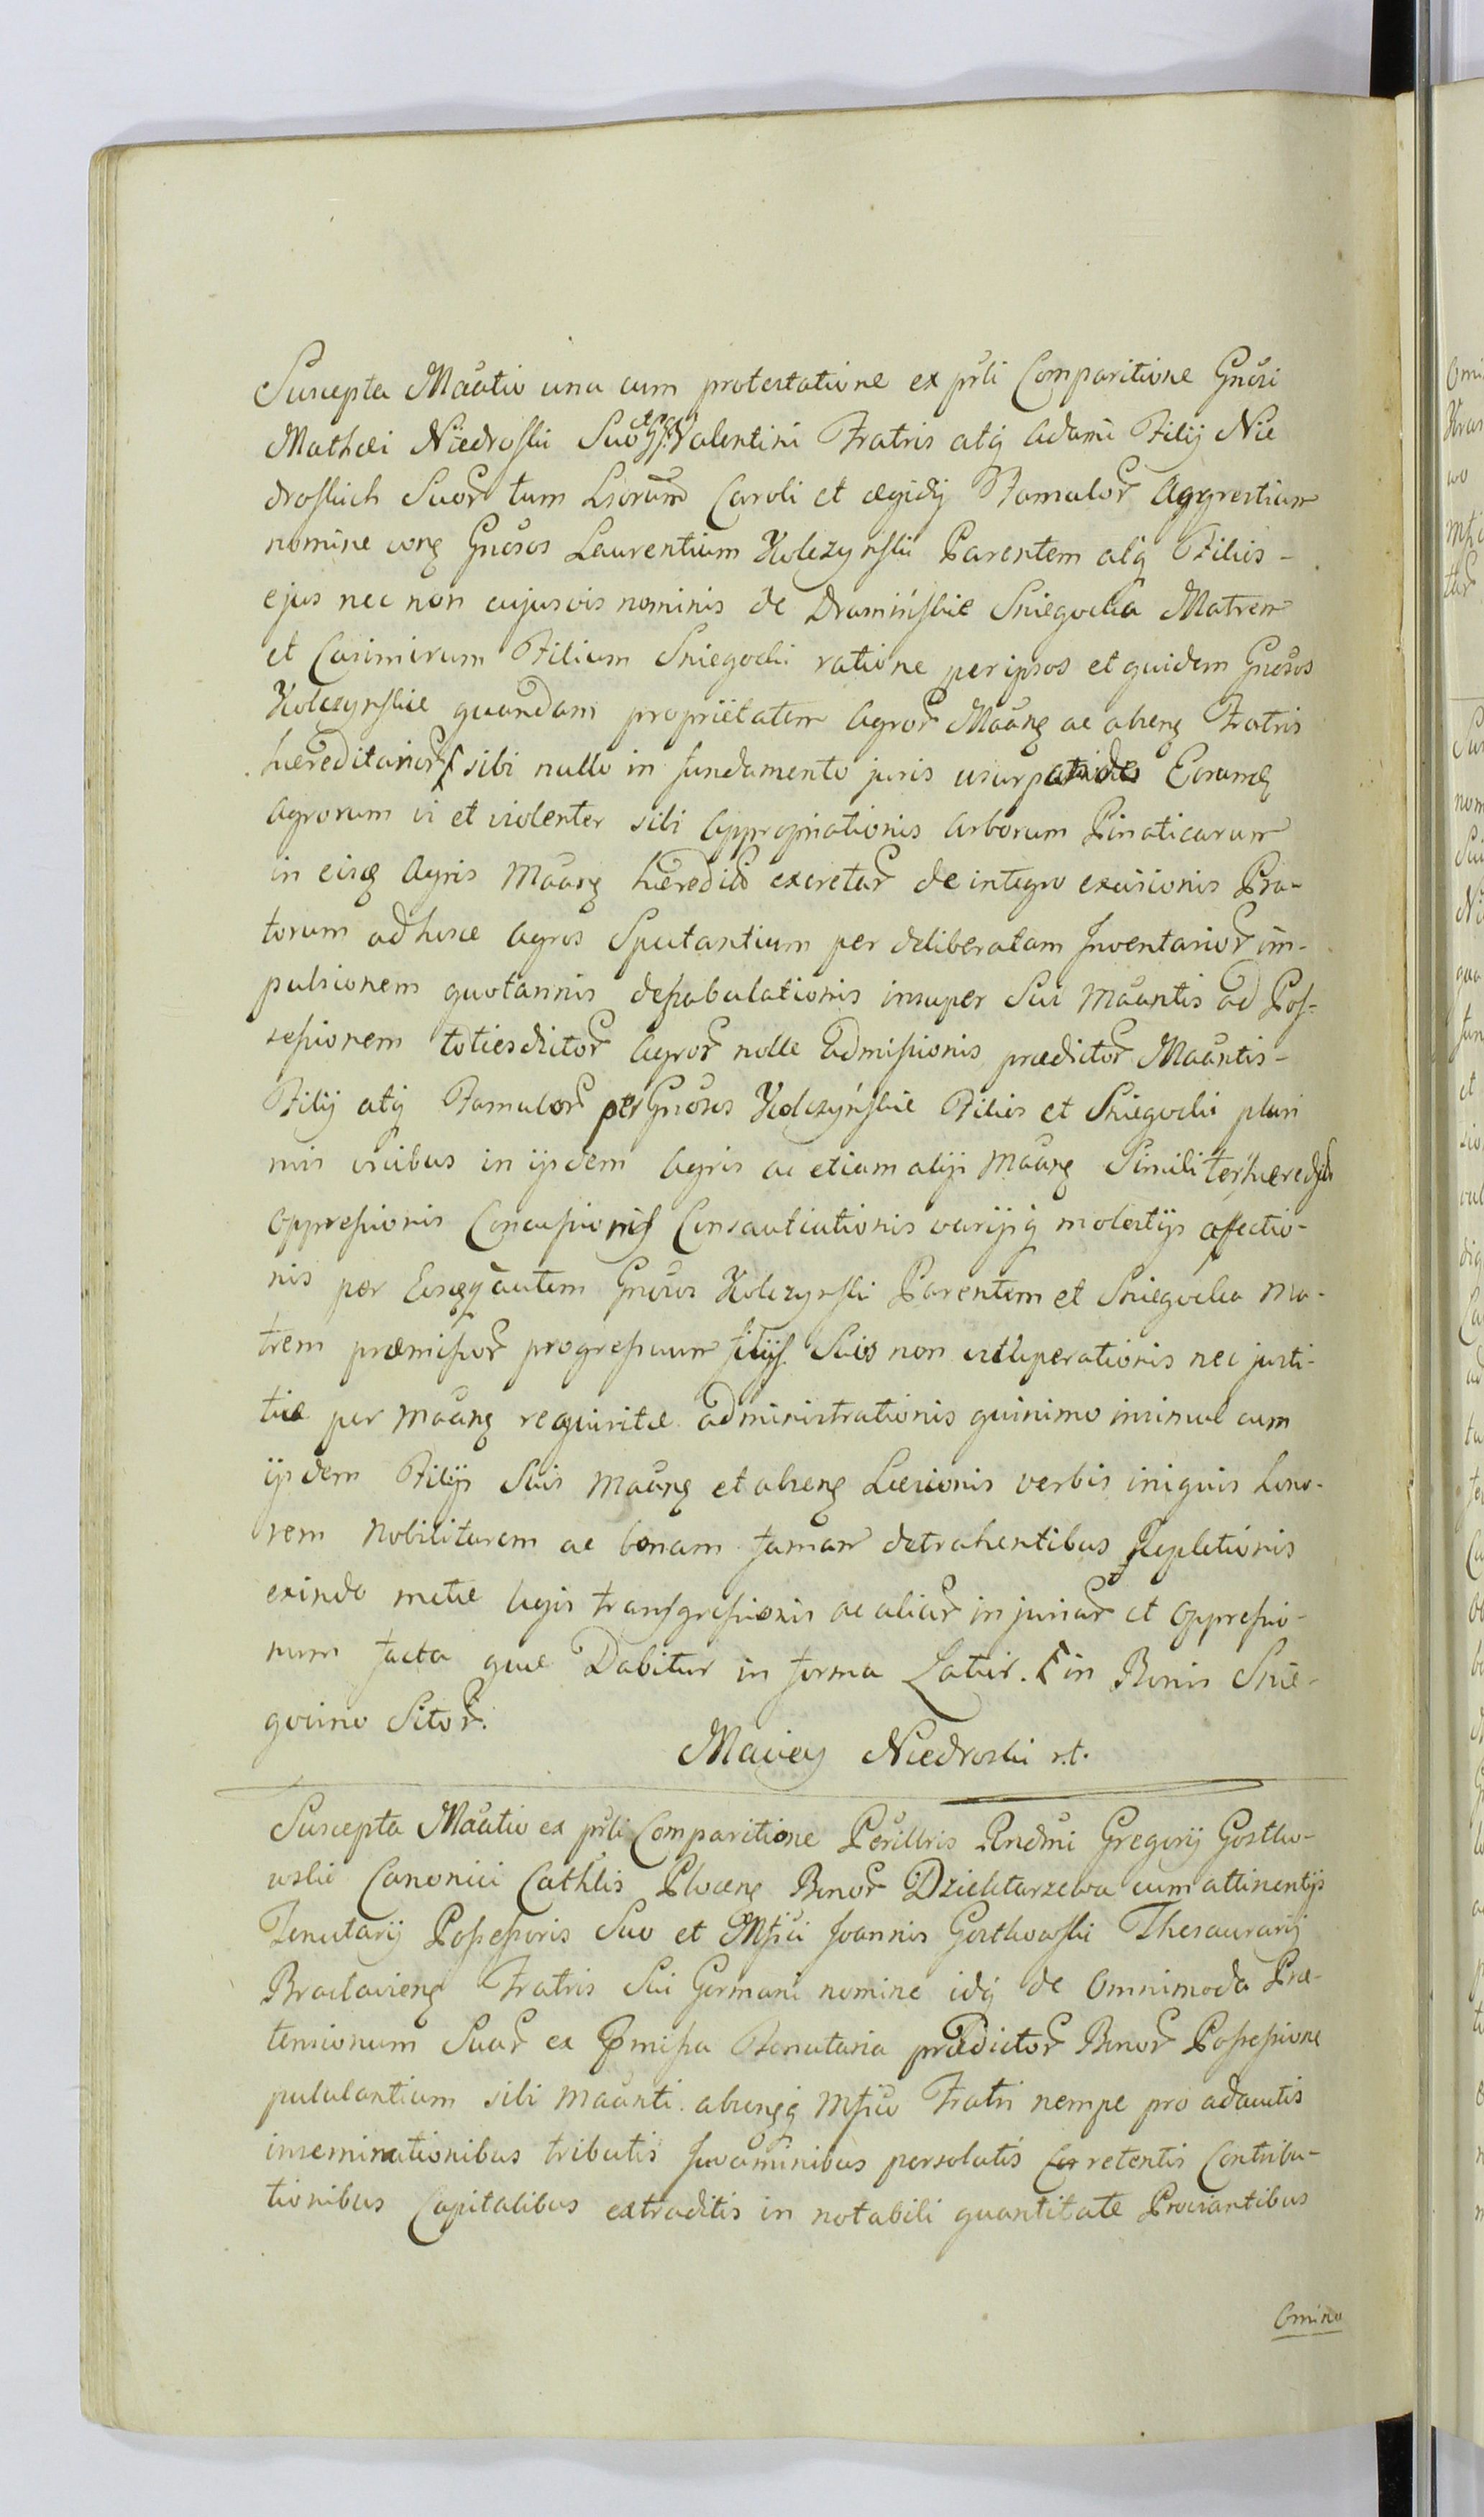 Suscepta Maãtio una cum protestatione ex prĩli Comparitione Gnõsi
Mathæi Niedroski Suo et Gsi Valentini Fratris atq̃ Adami Filij Nie
droskich Suor̃ tum Lsorum̃ Caroli et Ægidij Famulor̃ Aggrestium
nomine cong̃ Gnõsos Laurentium Kolczynski Parentem atq̃ Filios-
ejus nec non cujusvis nominis de Dramińskie Sniegocka Matrem
et Casimirum Filium Sniegocki ratione per ipsos et quidem Gnõsos
Kolczynskie quandam proprietatem Agror̃ Maãng̃ ac abseng̃ Fratris
hæreditarior̃ sibi nullo in fundamento juris Eorumq̃
Agrorum vi et violenter sibi Appropriationis Arborum Pinaticarum
in eisq̃ Agris Maãng̃ hæredit̃ excretar̃ de integro excisionis Pra-
torum ad hosce Agros Spectantium per deliberatam Inventarior̃ im-
pulsionem quotannis depabulationis insuper Sui Maãntis ad Pos-
sessionem totiesdictor̃ Agror̃ nolle Admissionis prædictor̃ Maãntis-
Filij atq̃ Famulor̃ per Gnõsos Kolczyńskie Filios et Sniegocki pluri
mis vicibus in ijsdem Agris ac etiam alijs Maãng̃ Similiter hæredit̃
Oppressionis Concussionis Consauciationis varijsq̃ molestijs affectio-
nis per Eosq̃ autem Gnõsos Kolczynski Parentem et Sniegocka Ma-
trem præmissor̃ progressuum filijs Suis non vituperationis nec justi-
tiæ per Maãng̃ requisitæ administrationis quinimo insimul cum
ijsdem Filijs Suis Maãng̃ et abseng̃ Læsionis verbis iniquis hono-
rem Nobilitarem ac bonam famam detrahentibus Repletionis
exinde metæ legis transgressionis ac aliar̃ injuriar̃ et Oppressio-
num facta quæ Dabitur in forma Latiori. in Bonis Snie-
gocino Sitor̃.
Maciey Niedroski st.
Suscepta Maãtio ex prĩli Comparitione Perillris Rndmi Gregorij Gostko-
wski Canonici Cathlis Plocens̃ Bonor̃ Dziektarzewa cum attinentijs
Tenutarij Possessoris Suo et Mfici Joannis Gostkowski Thesaurarij
Braclaviens̃ Fratris Sui Germani nomine idq̃ de Omnimoda Præ-
tensionum Suar̃ ex præmissa Tenutaria prædictor̃ Bonor̃ Possessione
pululantium sibi Maãnti absensq̃ Mfico Fratri nempe pro adauctis
inseminationibus tributis Juvaminibus persolutis retentis Contribu-
tionibus Capitalibus extraditis in notabili quantitate Proviantibus
Omino